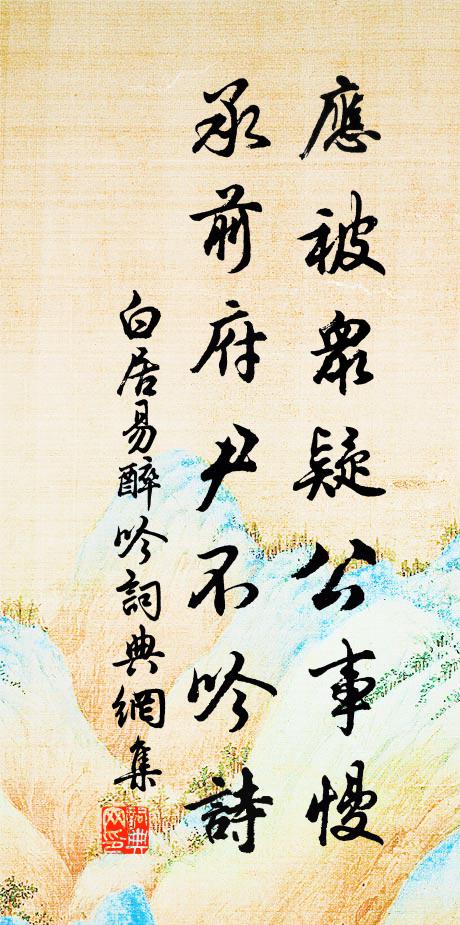 應被衆疑公事慢
承前府尹不吟詩
白居易醉吟詞典網集
詞典網印